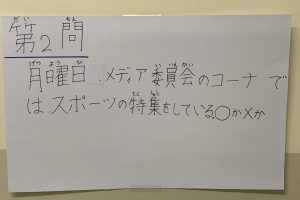 第2問
月曜日、メディア委員会のコーナーで
は、スポーツの特集をしている。○か×か